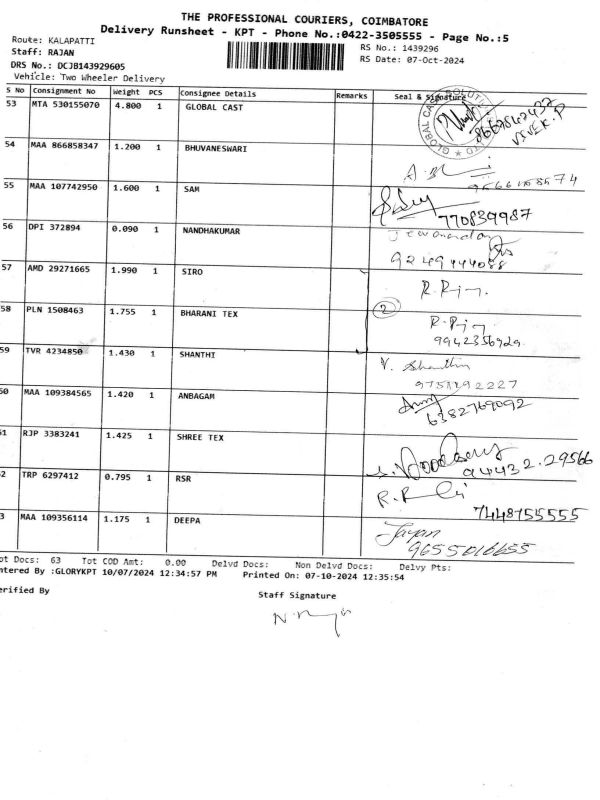 THE PROFESSIONAL COURIERS, COIMBATORE
Delivery Runsheet - KPT - Phone No.:0422-3505555 - Page No.:5
Route: KALAPATTI
RS No.: 1439296
Staff: RAJAN
RS Date: 07-Oct-2024
DRS No.: DCJB143929605
Vehicle: Two Wheeler Delivery
S No Consignment No Weight PCS Consignee Details Remarks Seal & Signature
53 MTA 530155070 4.800 1 GLOBAL CAST
VIVEK.P
54 MAA 866858347 1.200 1 BHUVANESWARI
55 MAA 107742950 1.600 1 SAM
770839987
56 DPI 372894 0.090 1 NANDHAKUMAR
9249444088
57 AMD 29271665 1.990 1 SIRO
58 PLN 1508463 1.755 1 BHARANI TEX 2
9942356929
59 TVR 4234850 1.430 1 SHANTHI V. Shanthi
9751192227
60 MAA 109384565 1.420 1 ANBAGAM
6382769092
61 RJP 3383241 1.425 1 SHREE TEX
94432.29566
62 TRP 6297412 0.795 1 RSR
7448755555
3 MAA 109356114 1.175 1 DEEPA Jayan
9655016655
ot Docs: 63 Tot COD Amt: 0.00 Delvd Docs: Non Delvd Docs: Delvy Pts:
ntered By :GLORYKPT 10/07/2024 12:34:57 PM Printed On: 07-10-2024 12:35:54
erified By
Staff Signature